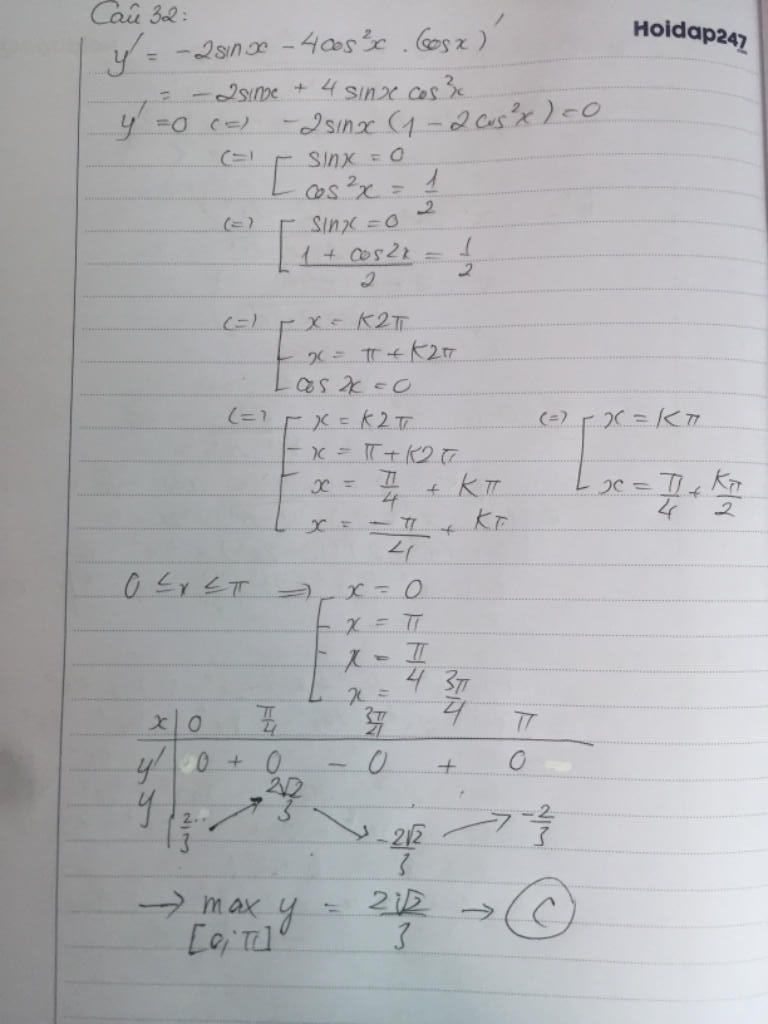 Câu 32:
Hoidap247
y' = -2sinx - 4cos²x . (cosx)'
= -2sinx + 4 sinx cos²x
y' = 0 (=) -2sinx (1 - 2cos²x) = 0
(=) [ sinx = 0
cos²x = 1/2
(=) [ sinx = 0
(1 + cos2x)/2 = 1/2
(=) [ x = K2π
x = π + K2π
cos 2x = 0
(=) [ x = K2π (=) [ x = Kπ
x = π + K2π
x = π/4 + Kπ x = π/4 + Kπ/2
x = -π/4 + Kπ
0 ≤ x ≤ π => [ x = 0
x = π
x = π/4
x = 3π/4
x | 0 π/4 3π/4 π
y' | 0 + 0 - 0 + 0
y | 2/3 ↗ 2√2/3 ↘ -2√2/3 → -2/3
→ max y = 2√2/3 → C
[0; π]